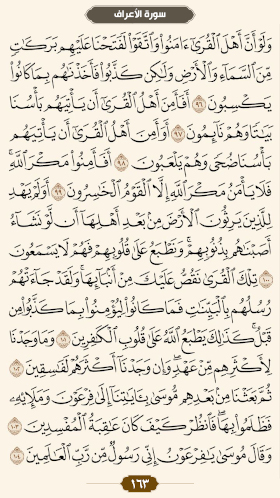 سورة الأعراف
وَلَوْ أَنَّ أَهْلَ ٱلْقُرَىٰٓ ءَامَنُوا۟ وَٱتَّقَوْا۟ لَفَتَحْنَا عَلَيْهِم بَرَكَٰتٍ
مِّنَ ٱلسَّمَآءِ وَٱلْأَرْضِ وَلَٰكِن كَذَّبُوا۟ فَأَخَذْنَٰهُم بِمَا كَانُوا۟
يَكْسِبُونَ ٩٦ أَفَأَمِنَ أَهْلُ ٱلْقُرَىٰٓ أَن يَأْتِيَهُم بَأْسُنَا
بَيَٰتًا وَهُمْ نَآئِمُونَ ٩٧ أَوَأَمِنَ أَهْلُ ٱلْقُرَىٰٓ أَن يَأْتِيَهُم
بَأْسُنَا ضُحًى وَهُمْ يَلْعَبُونَ ٩٨ أَفَأَمِنُوا۟ مَكْرَ ٱللَّهِ ۚ
فَلَا يَأْمَنُ مَكْرَ ٱللَّهِ إِلَّا ٱلْقَوْمُ ٱلْخَٰسِرُونَ ٩٩ أَوَلَمْ يَهْدِ
لِلَّذِينَ يَرِثُونَ ٱلْأَرْضَ مِنۢ بَعْدِ أَهْلِهَآ أَن لَّوْ نَشَآءُ
أَصَبْنَٰهُم بِذُنُوبِهِمْ ۚ وَنَطْبَعُ عَلَىٰ قُلُوبِهِمْ فَهُمْ لَا يَسْمَعُونَ
١٠٠ تِلْكَ ٱلْقُرَىٰ نَقُصُّ عَلَيْكَ مِنْ أَنۢبَآئِهَا ۚ وَلَقَدْ جَآءَتْهُمْ
رُسُلُهُم بِٱلْبَيِّنَٰتِ فَمَا كَانُوا۟ لِيُؤْمِنُوا۟ بِمَا كَذَّبُوا۟ مِن
قَبْلُ ۚ كَذَٰلِكَ يَطْبَعُ ٱللَّهُ عَلَىٰ قُلُوبِ ٱلْكَٰفِرِينَ ١٠١ وَمَا وَجَدْنَا
لِأَكْثَرِهِم مِّنْ عَهْدٍ ۖ وَإِن وَجَدْنَآ أَكْثَرَهُمْ لَفَٰسِقِينَ ١٠٢
ثُمَّ بَعَثْنَا مِنۢ بَعْدِهِم مُّوسَىٰ بِـَٔايَٰتِنَآ إِلَىٰ فِرْعَوْنَ وَمَلَإِي۟هِۦ
فَظَلَمُوا۟ بِهَا ۖ فَٱنظُرْ كَيْفَ كَانَ عَٰقِبَةُ ٱلْمُفْسِدِينَ ١٠٣
وَقَالَ مُوسَىٰ يَٰفِرْعَوْنُ إِنِّى رَسُولٌ مِّن رَّبِّ ٱلْعَٰلَمِينَ ١٠٤
١٦٣